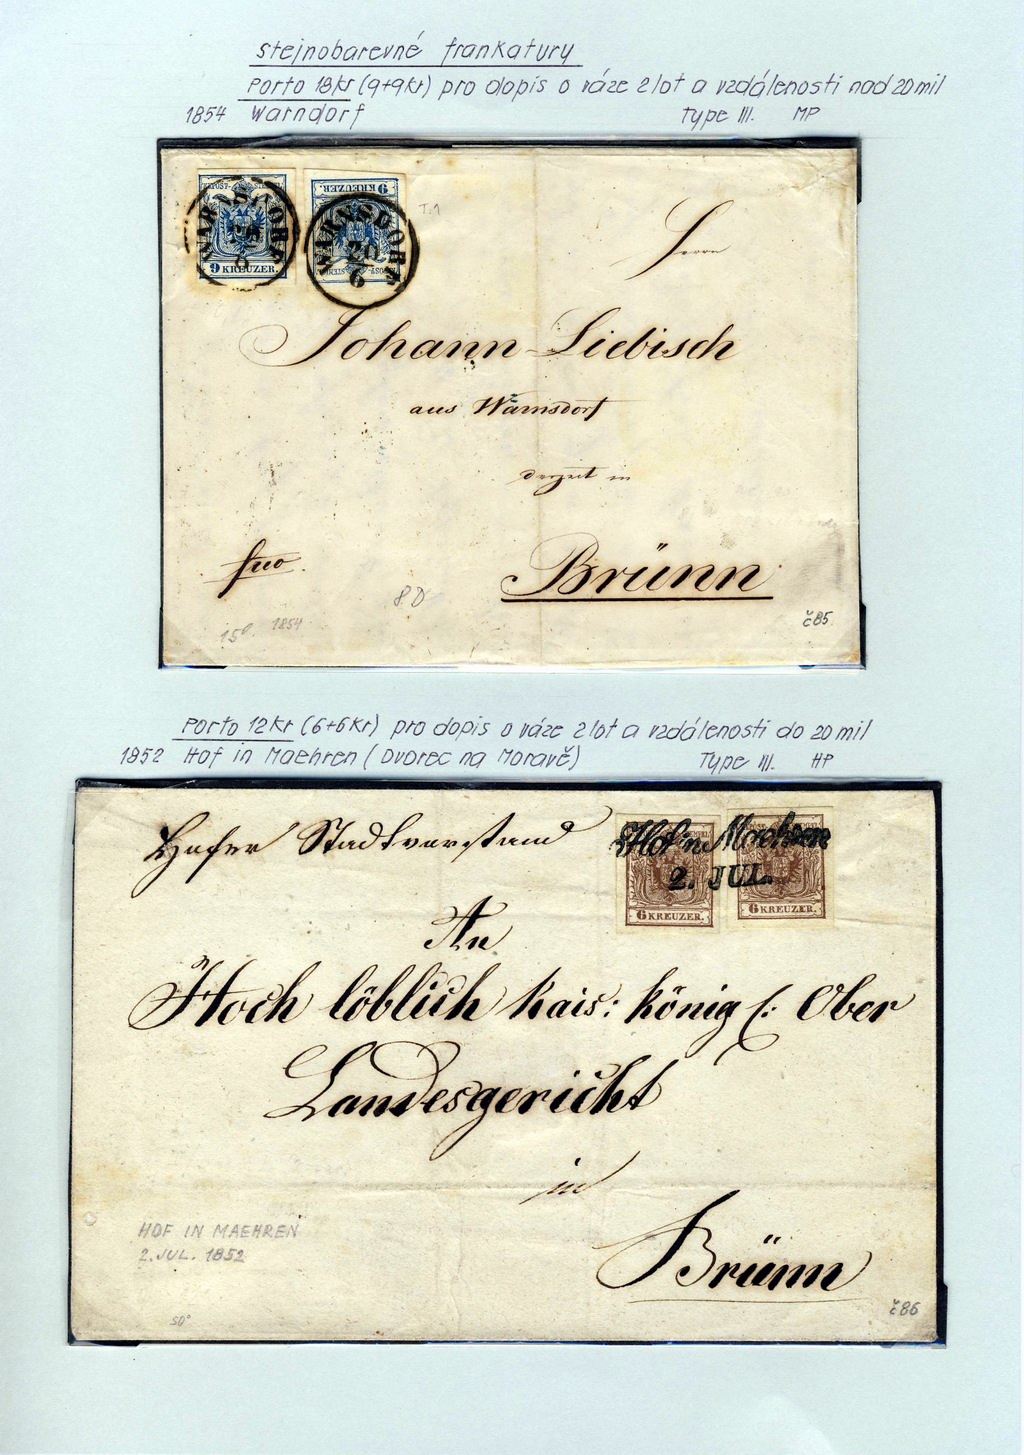 stejnobarevné frankatury
Porto 18kr (9+9kr) pro dopis o váze 2 lot a vzdálenosti nad 20 mil
1854 Warndorf Type III. MP
9 KREUZER.
9 KREUZER.
WARNSDORF
WARNSDORF
20
6
T.1
Herrn
Johann Liebisch
aus Warnsdorf
derzeit in
Brünn
frco
8D
15° 1854
č85
Porto 12kr (6+6kr) pro dopis o váze 2 lot a vzdálenosti do 20 mil
1852 Hof in Maehren (Dvorec na Moravě) Type III. HP
Hofer Stadtvorstand
Hof in Maehren
2. JUL.
6 KREUZER.
6 KREUZER.
An
Hoch löblich kais: königl: Ober
Landesgericht
in
Brünn
HOF IN MAEHREN
2. JUL. 1852
50°
č86